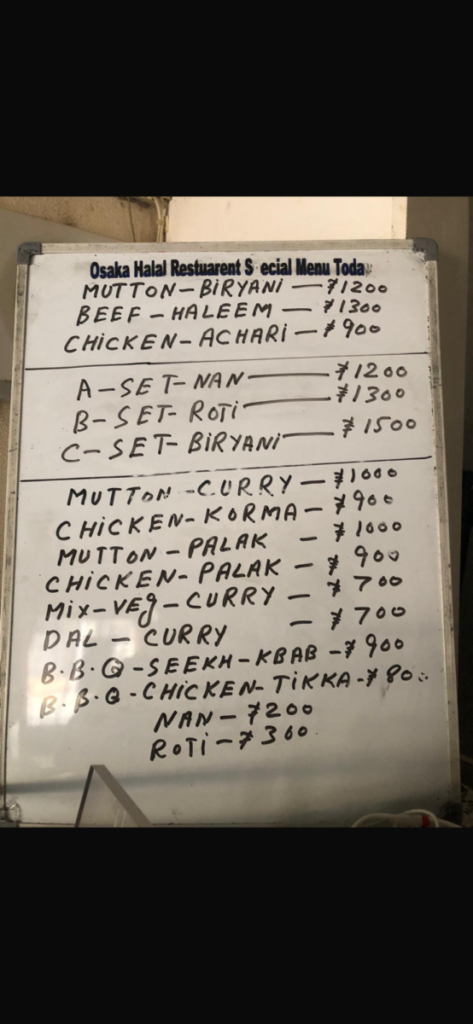 Osaka Halal Restuarent S ecial Menu Toda
MUTTON-BiRYANi — ¥1200
BEEF - HALEEM — ¥1300
CHiCKEN-ACHARi - ¥900
A-SET-NAN — ¥1200
B-SET-ROTi — ¥1300
C-SET-BiRYANi — ¥1500
MUTTON-CURRY - ¥1000
CHiCKEN-KORMA - ¥900
MUTTON-PALAK - ¥1000
CHiCKEN-PALAK - ¥900
Mix-VEg-CURRY - ¥700
DAL - CURRY - ¥700
B.B.Q-SEEKH-KBAB - ¥900
B.B.Q-CHiCKEN-TiKKA - ¥800
NAN - ¥200
ROTi - ¥300